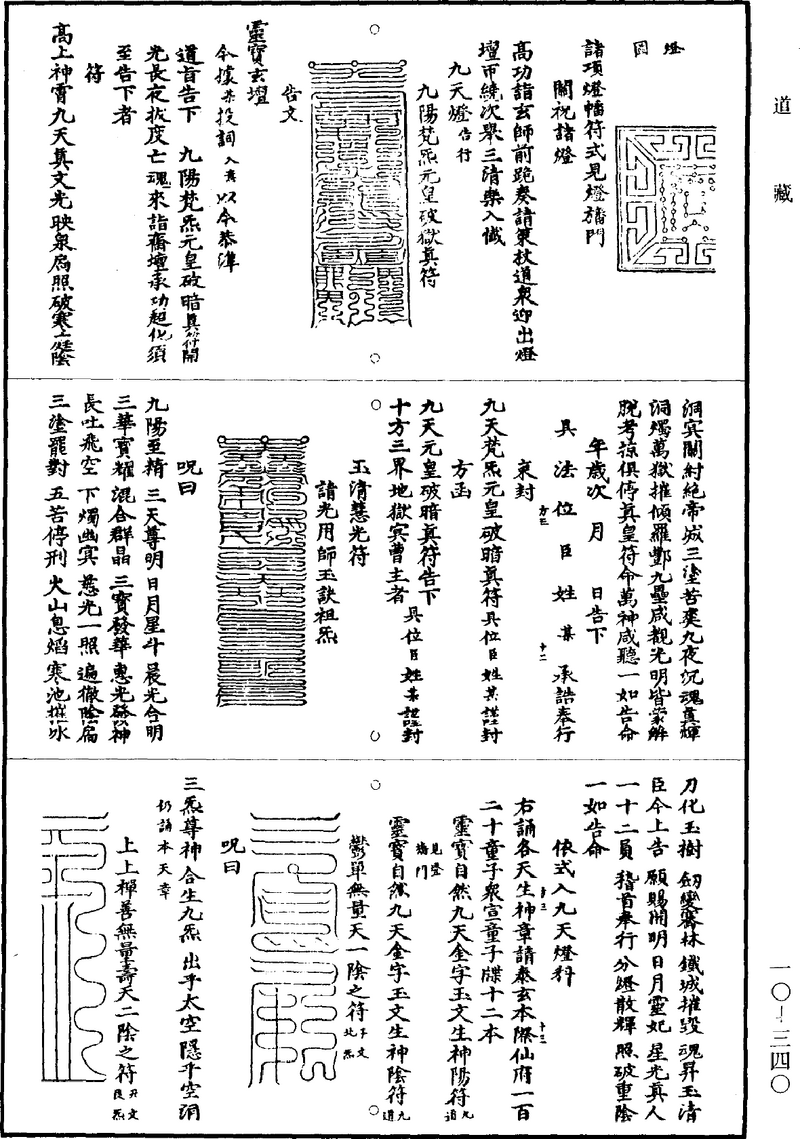 道藏
燈
圖
諸項燈幡符式見燈旛門
關祝諸燈
高功詣玄師前跪奏請策杖道衆迎出燈
壇帀繞次舉三清樂入懺
九天燈告行
九陽梵炁元皇破獄眞符
告文
靈寶玄壇
今據某投詞入意以今恭準
道旨告下 九陽梵炁元皇破暗眞符開
光長夜拔度亡魂來詣齋壇承功超化須
至告下者
符
高上神霄九天眞文光映泉扃照破寒上延陰
洞寅關紂絶帝城三塗苦爽九夜沉魂眞輝
洞燭萬獄摧傾羅酆九壘咸觀光明皆蒙解
脫考掠俱停眞皇符命萬神咸聽一如告命
年歲次 月 日告下
具法位臣姓某承誥奉行
方三
十二
柬封
九天梵炁元皇破暗眞符具位臣姓某謹封
方函
九天元皇破暗眞符告下
十方三界地獄冥曹主者具位臣姓某謹封
玉清慧光符
請光用師玉訣祖炁
呪曰
九陽至精 三天尊明 日月星斗 晨光合明
三華寶耀 混合群晶 三寶發華 惠光發神
長吐飛空 下燭幽冥 慈光一照 遍徹陰扃
三塗罷對 五苦停刑 火山息熖 寒池摧冰
刀化玉樹 劒變騫林 鐵城摧毀 魂昇玉清
臣今上告 願賜開明 日月靈妃 星光眞人
一十二員 稽首奉行 分燈散輝 照破重陰
一如告命
依式入九天燈科
右誦各天生神章請奏玄本際仙府一百
二十童子衆宣童子牒十二本
靈寶自然九天金字玉文生神陽符九道
見登旛門
靈寶自然九天金字玉文生神陰符九道
鬱單無量天一陰之符
呪曰
三炁尊神 合生九炁 出乎太空 隱乎空洞
仍誦本天章
上上禪善無量壽天二陰之符
一〇—三四〇